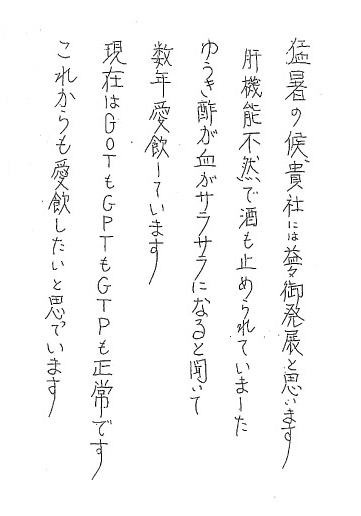 猛暑の候、貴社には益々御発展と思います
肝機能不然で酒も止められていました
ゆうき酢が血がサラサラになると聞いて
数年愛飲しています
現在はGOTもGPTもGTPも正常です
これからも愛飲したいと思っています